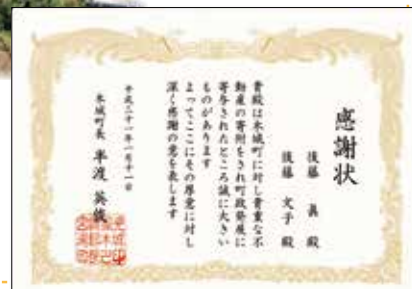 感謝状
後藤 眞 殿
後藤 文子 殿
貴殿は木城町に対し貴重な不
動産の寄附をされ町政発展に
寄与されたところ誠に大きい
ものがあります
よってここにその厚意に対し
深く感謝の意を表します
平成二十一年一月十一日
木城町長 半渡 英俊